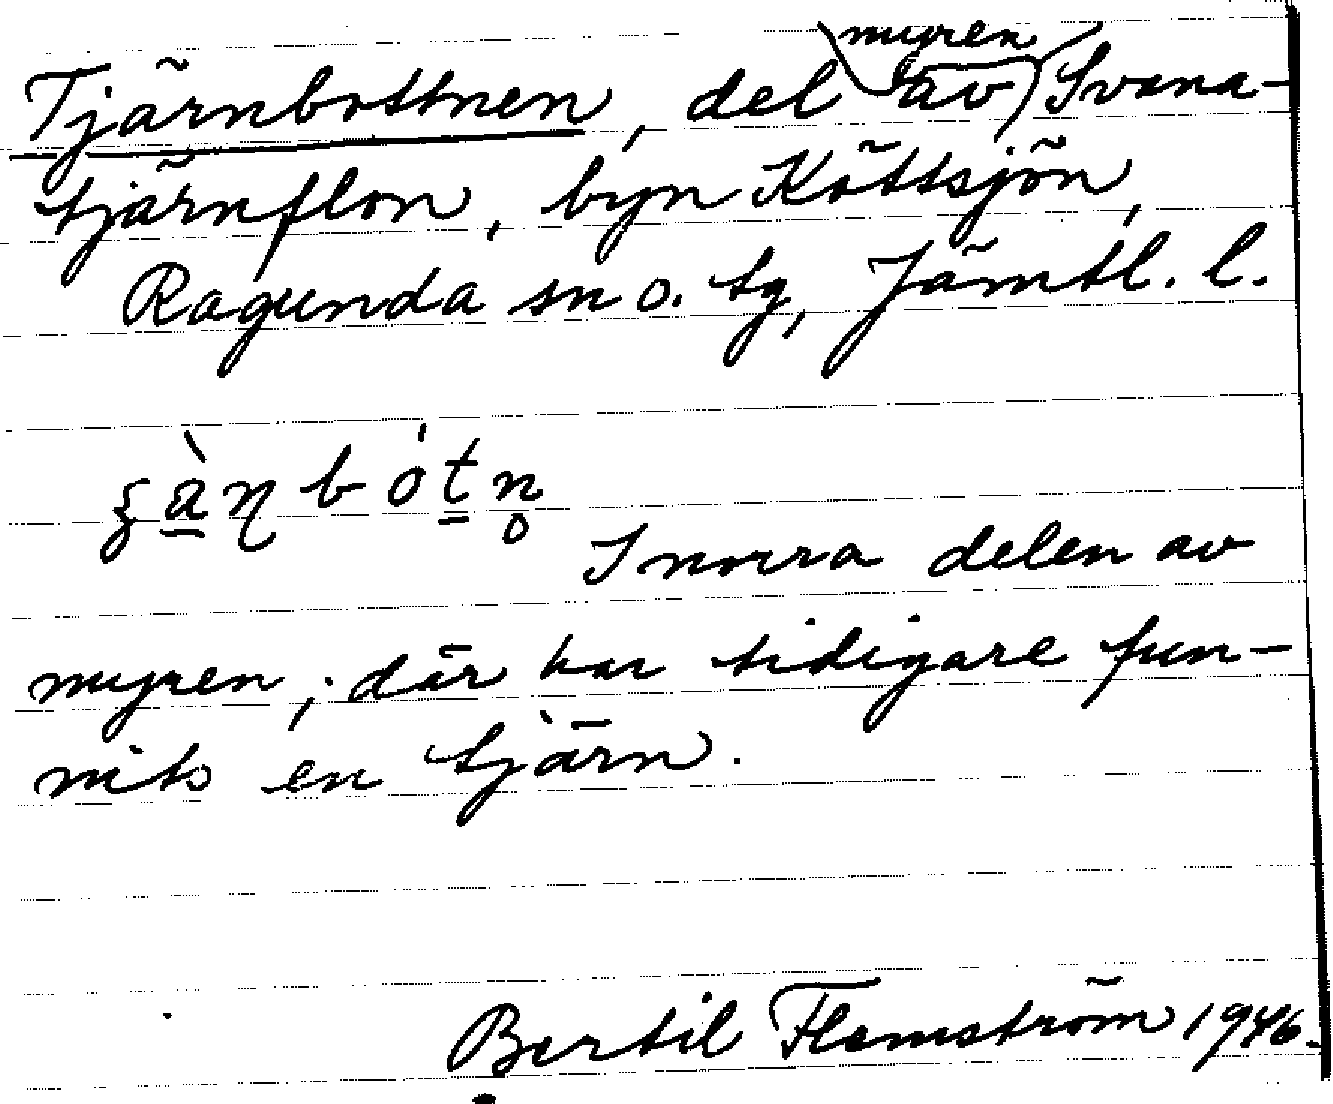 Tjärnbottnen, del av myren Svana-
tjärnflon, byn Köttsjön,
Ragunda sn o. tg, Jämtl. l.
I norra delen av
myren; där har tidigare fun-
nits en tjärn.
Bertil Flemström 1946.